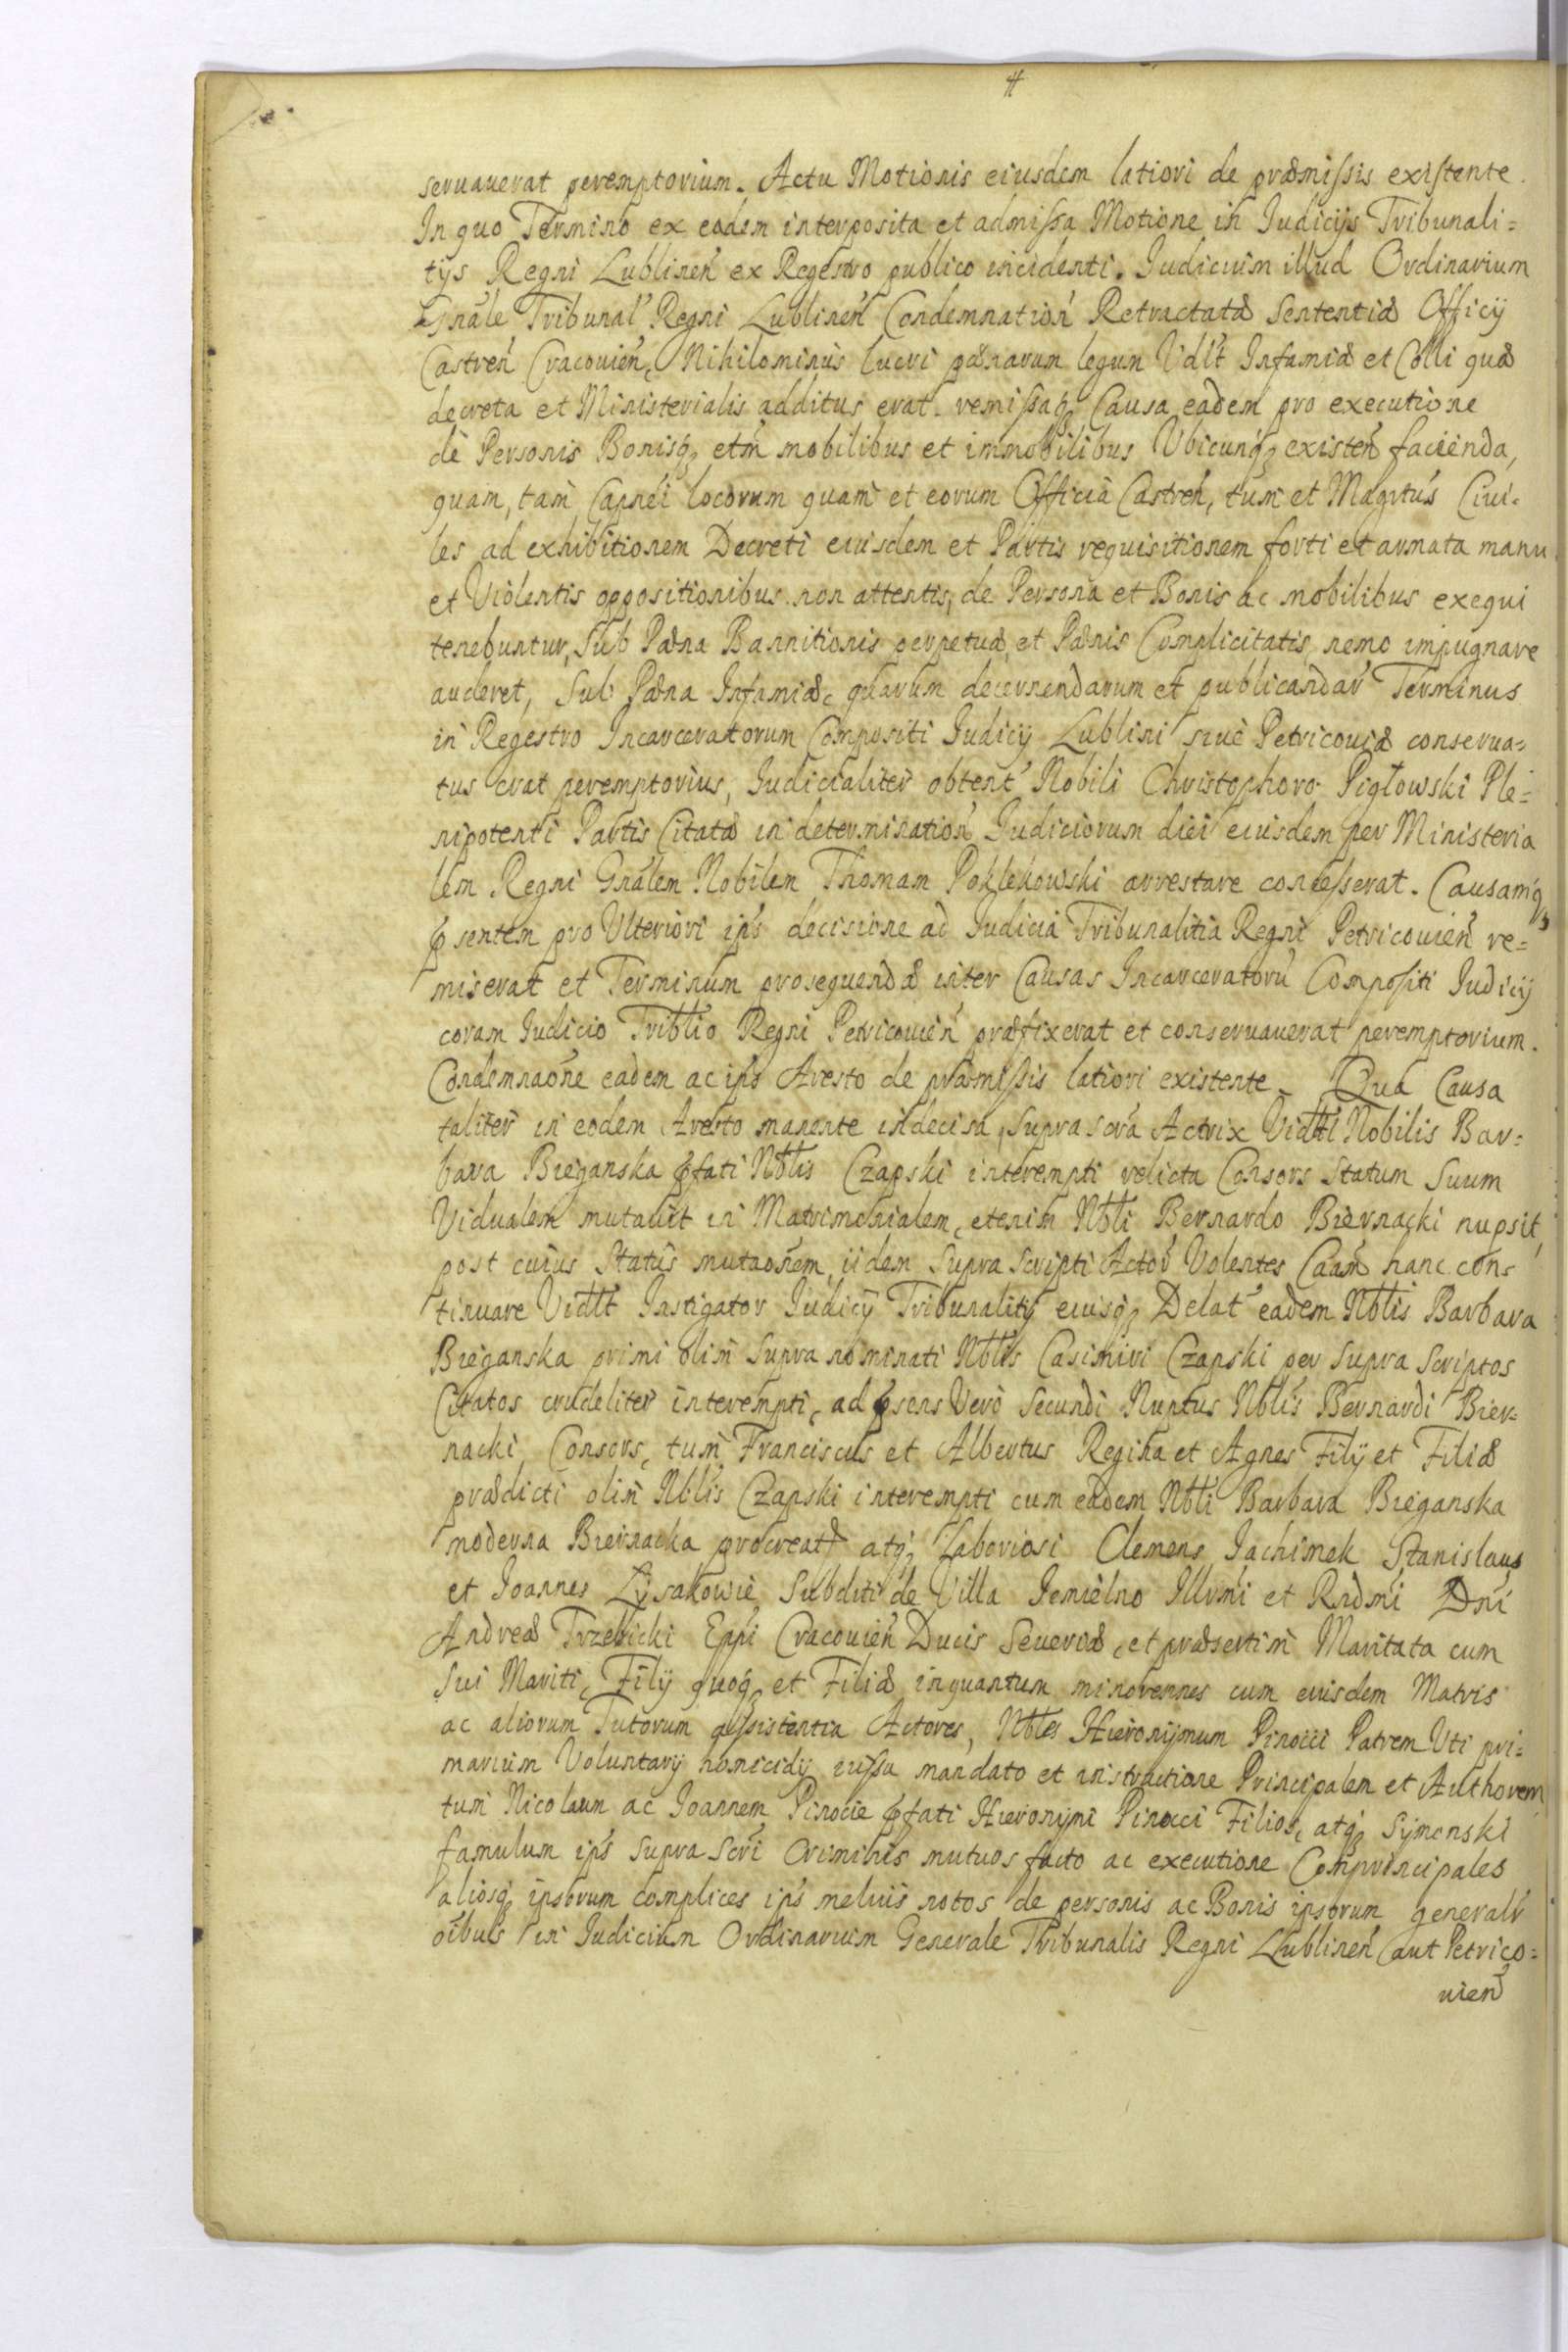 #
seruauerat peremptorium. Actu Motionis eiusdem latiori de præmissis existente.
In quo Termino ex eadem interposita et admissa Motione in Judicijs Tribunali=
tijs Regni Lublineñ ex Regestro publico incidenti. Judicium illud Ordinarium
Gnãle Tribunal' Regni Lublineñ Condemnatioñ Retractatæ Sententiæ Officij
Castreñ Cracouieñ, Nihilominus lucri pænarum legum Vdlt Infamiæ et Colli quæ
decreta et Ministerialis additus erat. remissaq₃ Causa eadem pro executione
de Personis Bonisq₃ etm̃ mobilibus et immobilibus Vbicunq₃ existeñ facienda,
quam, tam Capnei locorum quam et eorum Officia Castreñ, tum et Magrtus Ciui-
les ad exhibitionem Decreti eiusdem et Partis requisitionem forti et armata manu
et Violentis oppositionibus non attentis, de Persona et Bonis ac mobilibus exequi
tenebuntur, Sub Pæna Bannitionis perpetuæ, et Pænis Complicitatis, nemo impugnare
auderet, Sub Pæna Infamiæ, quarum decernendarum et publicandar' Terminus
in Regestro Incarceratorum Compositi Judicij Lublini siue Petricouiæ conserua=
tus erat peremptorius, Judicialiter obtent' Nobili Christophoro Pigłowski Ple=
nipotenti Partis Citatæ in determinatioñ Judiciorum diei eiusdem per Ministeria
lem Regni Gnãlem Nobilem Thomam Poklekowski arrestare concesserat. Causamq₃
ꝓsentem pro Vlteriori ips' decisione ad Judicia Tribunalitia Regni Petricouieñ re=
miserat et Terminum prosequendæ inter Causas Incarceratorũ Compositi Judicij
coram Judicio Triblio Regni Petricouieñ præfixerat et conseruauerat peremptorium.
Condemnaõne eadem ac ips' Aresto de præmissis latiori existente. Qua Causa
taliter in eodem Aresto manente indecisa, Suprascra Actrix Vidlt Nobilis Bar=
bara Bieganska ꝓfati Nblis Czapski interempti relicta Consors Statum Suum
Vidualem mutauit in Matrimonialem, etenim Nbli Bernardo Biernacki nupsit,
post cuius Status mutaõnem, iidem Supra Scripti Actor' Volentes Caam hanc con=
tinuare Vidlt Instigator Judicij Tribunalitij eiusq₃ Delat' eadem Nblis Barbara
Bieganska primi olim Supra nominati Nblis Casimiri Czapski per Supra Scriptos
Citatos crudeliter interempti, ad ꝓsens Vero Secundi Nuptus Nblis Bernardi Bier=
nacki Consors, tum Franciscus et Albertus Regina et Agnes Filij et Filiæ
prædicti olim Nblis Czapski interempti cum eadem Nbli Barbara Bieganska
moderna Biernacka procreatæ atq₃ Laboriosi Clemens Jachimek Stanislaus
et Joannes Łysakowie Subditi de Villa Jemielno Illrmi et Rndmi Dni
Andreæ Trzebicki Eppi Cracouieñ Ducis Seueriæ, et præsertim Maritata cum
Sui Mariti, Filij quoq₃ et Filiæ inquantum minorennes cum eiusdem Matris
ac aliorum Tutorum assistentia Actores, Nbles Hieronijmum Pinocci Patrem Vti pri=
marium Voluntarij homicidij iussu mandato et instructione Principalem et Authorem
tum Nicolaum ac Joannem Pinocie ꝓfati Hieronymi Pinocci Filios, atq₃ Symonski
famulum ips' Supra Scri Criminis mutuos facto ac executione Comprincipales
aliosq₃ ipsorum complices ips' melius notos de personis ac Bonis ipsorum generalr'
oibus in Judicium Ordinarium Generale Tribunalis Regni Lublineñ aut Petrico=
uieñ